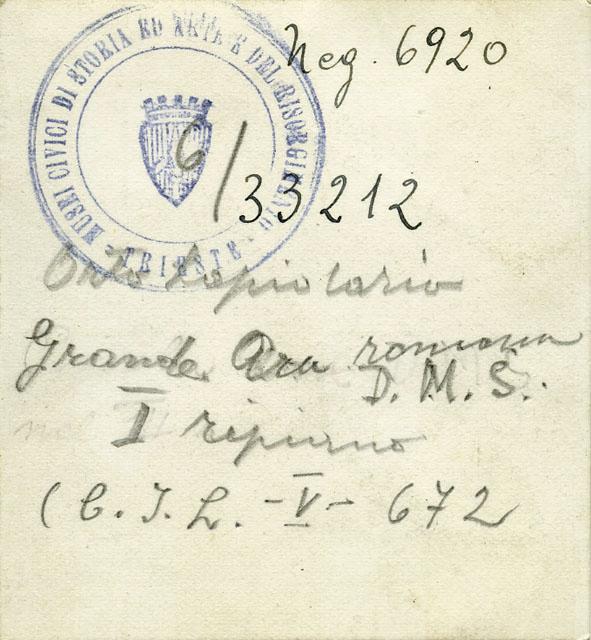 Neg. 6920
MUSEI CIVICI DI STORIA ED ARTE E DEL RISORGIMENTO
- TRIESTE -
6/33212
Orto Lapidario
Grande Ara romana
D. M. S.
I ripiano
(C. I. L. - V - 672